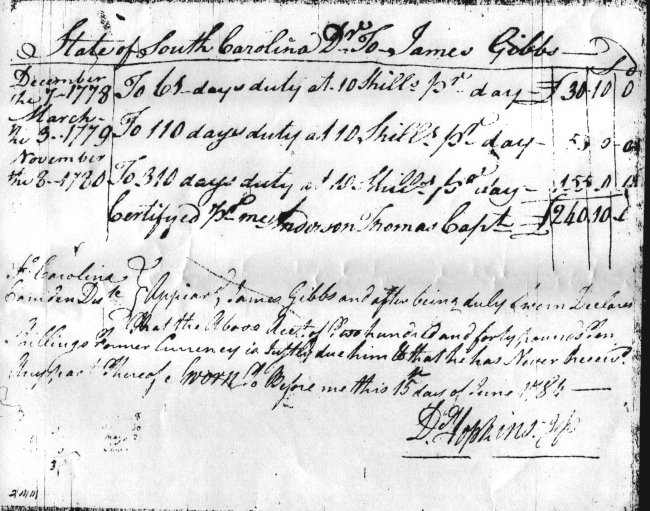 State of South Carolina Dr. To James Gibbs
December the 7-1778 To 61 days duty at 10 Shills pr day £ 30-10 0
March the 3-1779 To 110 days duty at 10 Shills pr day 55 0 0
November the 8-1780 To 310 days duty at 10 Shills pr day 155 0 0
Certifyed pr me Anderson Thomas Capt £ 240 10
So Carolina
Camden Dist Appeard James Gibbs and after being duly Sworn Declares
that the Above Acct of Two hundred and forty pounds Ten
Shillings Former Currency is Justly due him & that he has Never Receivd
Any part thereof Sworn to Before me this 15th day of June 1784
D Hopkins
2441